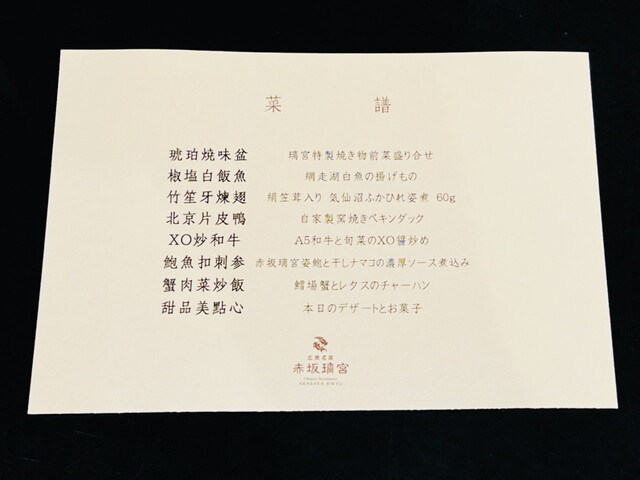 菜 譜
琥珀焼味盆 璃宮特製焼き物前菜盛り合せ
椒塩白飯魚 網走湖白魚の揚げもの
竹笙牙煉翅 絹笠茸入り 気仙沼ふかひれ姿煮 60g
北京片皮鴨 自家製窯焼きペキンダック
XO炒和牛 A5和牛と旬菜のXO醤炒め
鮑魚扣刺参 赤坂璃宮姿鮑と干しナマコの濃厚ソース煮込み
蟹肉菜炒飯 鱈場蟹とレタスのチャーハン
甜品美點心 本日のデザートとお菓子
広東名菜
赤坂璃宮
AKASAKA RIKYU